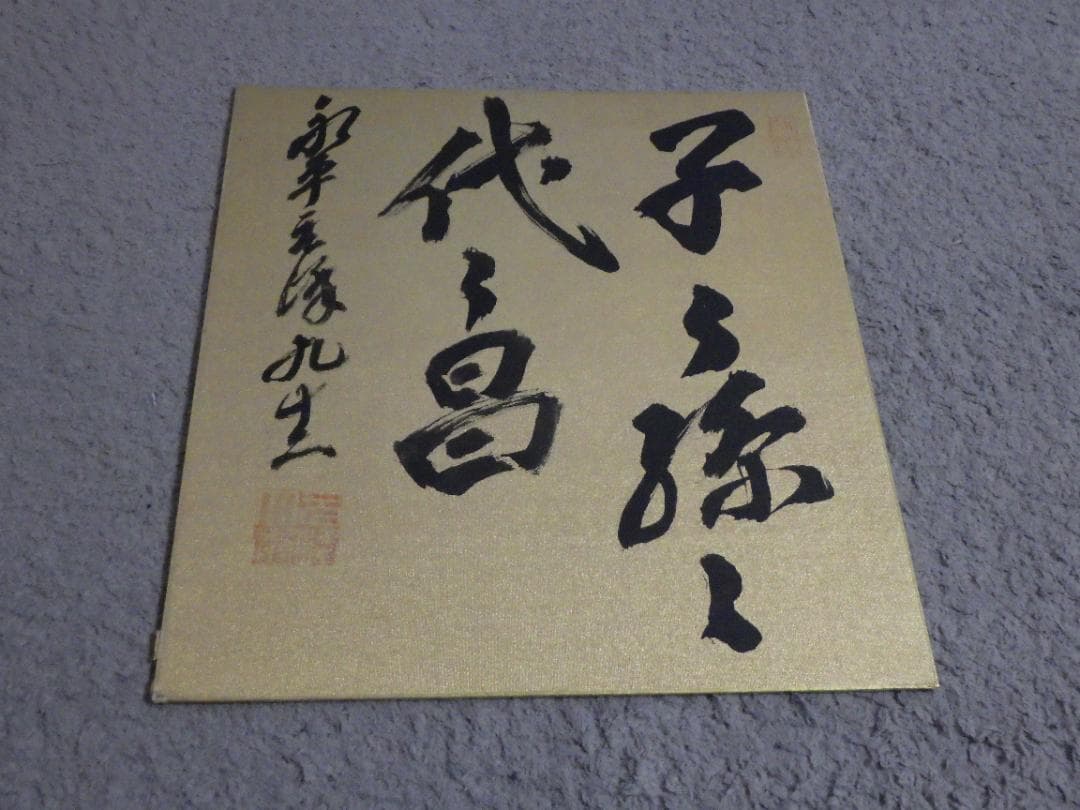 子々孫々
代々昌
永平九